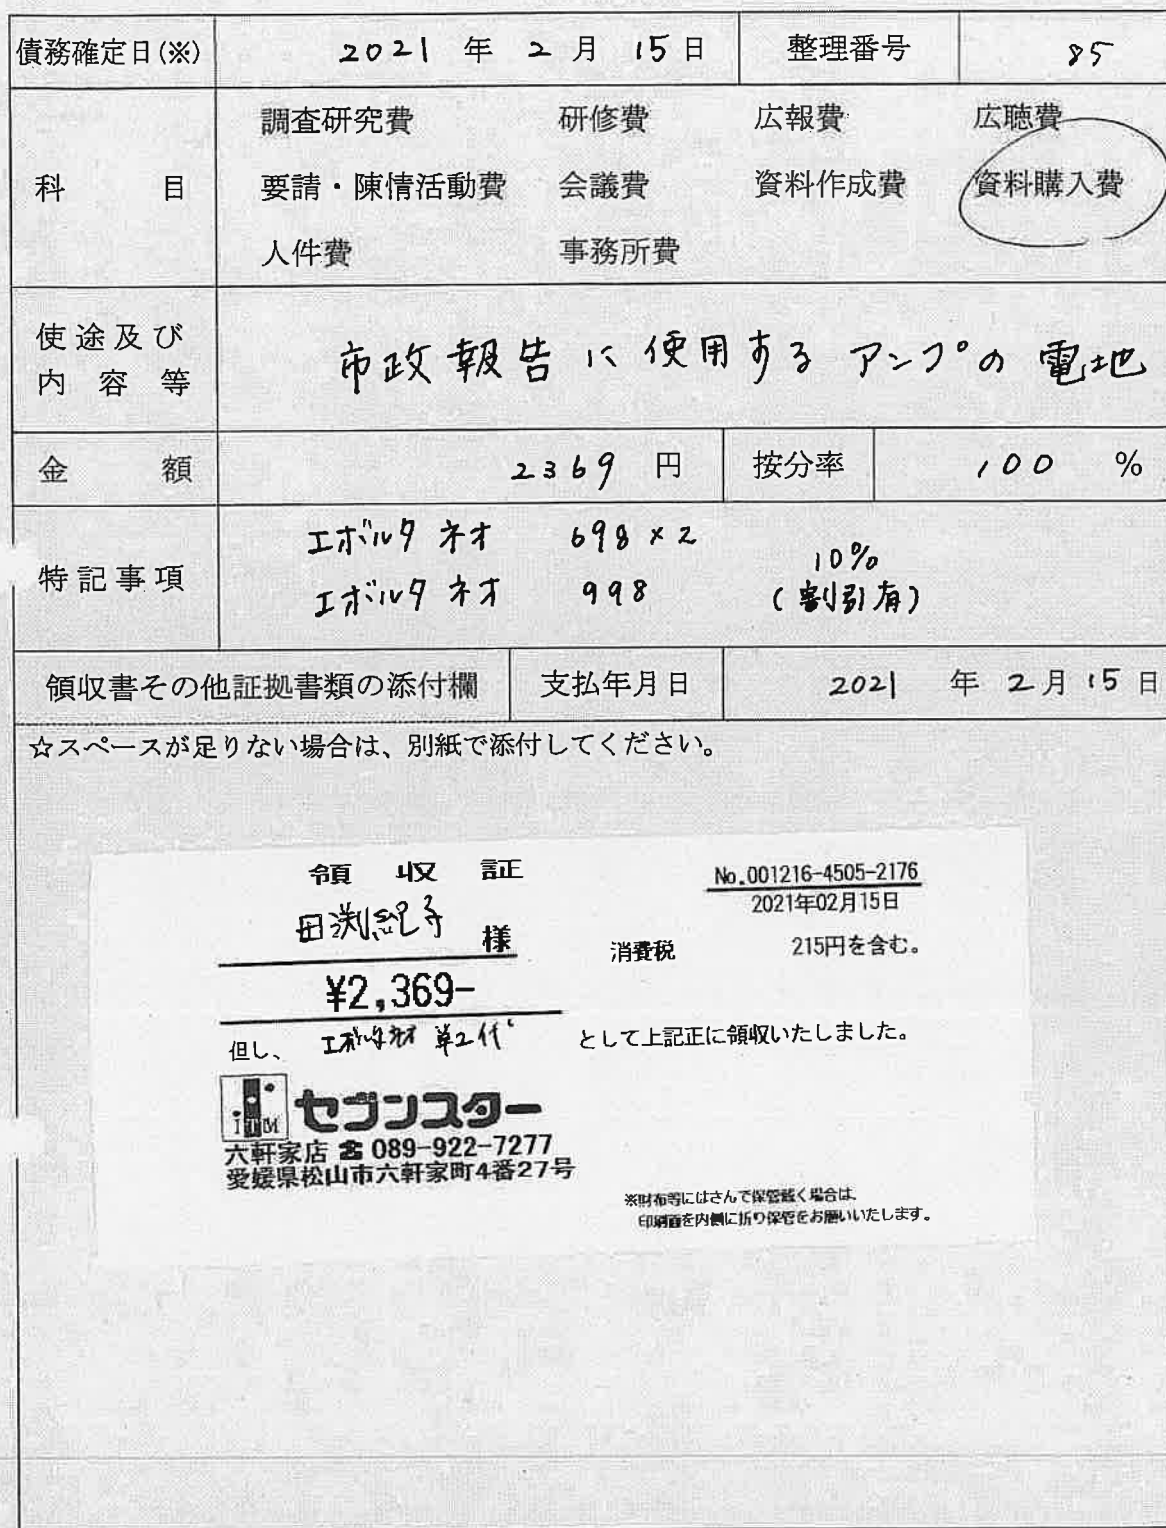 債務確定日(※) 2021 年 2 月 15 日 整理番号 85
調査研究費 研修費 広報費 広聴費
科 目 要請・陳情活動費 会議費 資料作成費 資料購入費
人件費 事務所費
使途及び
内容等
市政報告に使用するアンプの電池
金 額 2369 円 按分率 100 %
特記事項
エボルタ ネオ 698×2
エボルタ ネオ 998
10%
(割引有)
領収書その他証拠書類の添付欄 支払年月日 2021 年 2 月 15 日
☆スペースが足りない場合は、別紙で添付してください。
領 収 証
No.001216-4505-2176
2021年02月15日
田渕紀子 様
消費税 215円を含む。
¥2,369-
但し、 エボルタネオ 単2代 として上記正に領収いたしました。
ITM セブンスター
六軒家店 ☎ 089-922-7277
愛媛県松山市六軒家町4番27号
※財布等にはさんで保管戴く場合は、
印刷面を内側に折り保管をお願いいたします。